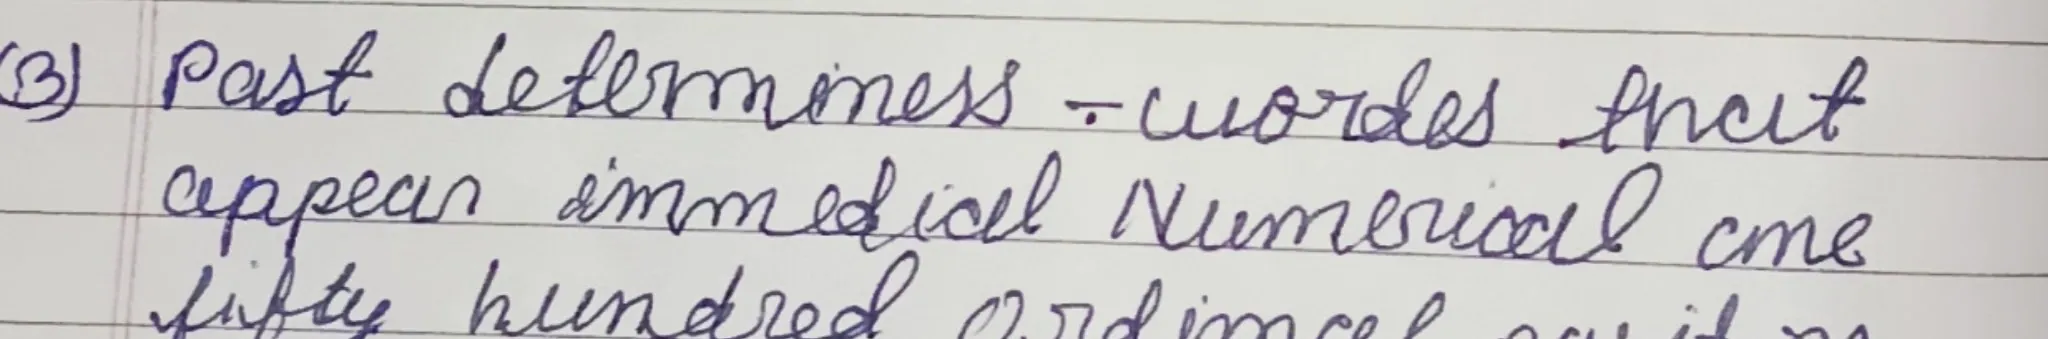 (3) Past determiness :- wordes that
appear immedical Numerical one
fifty hundred ordimcel